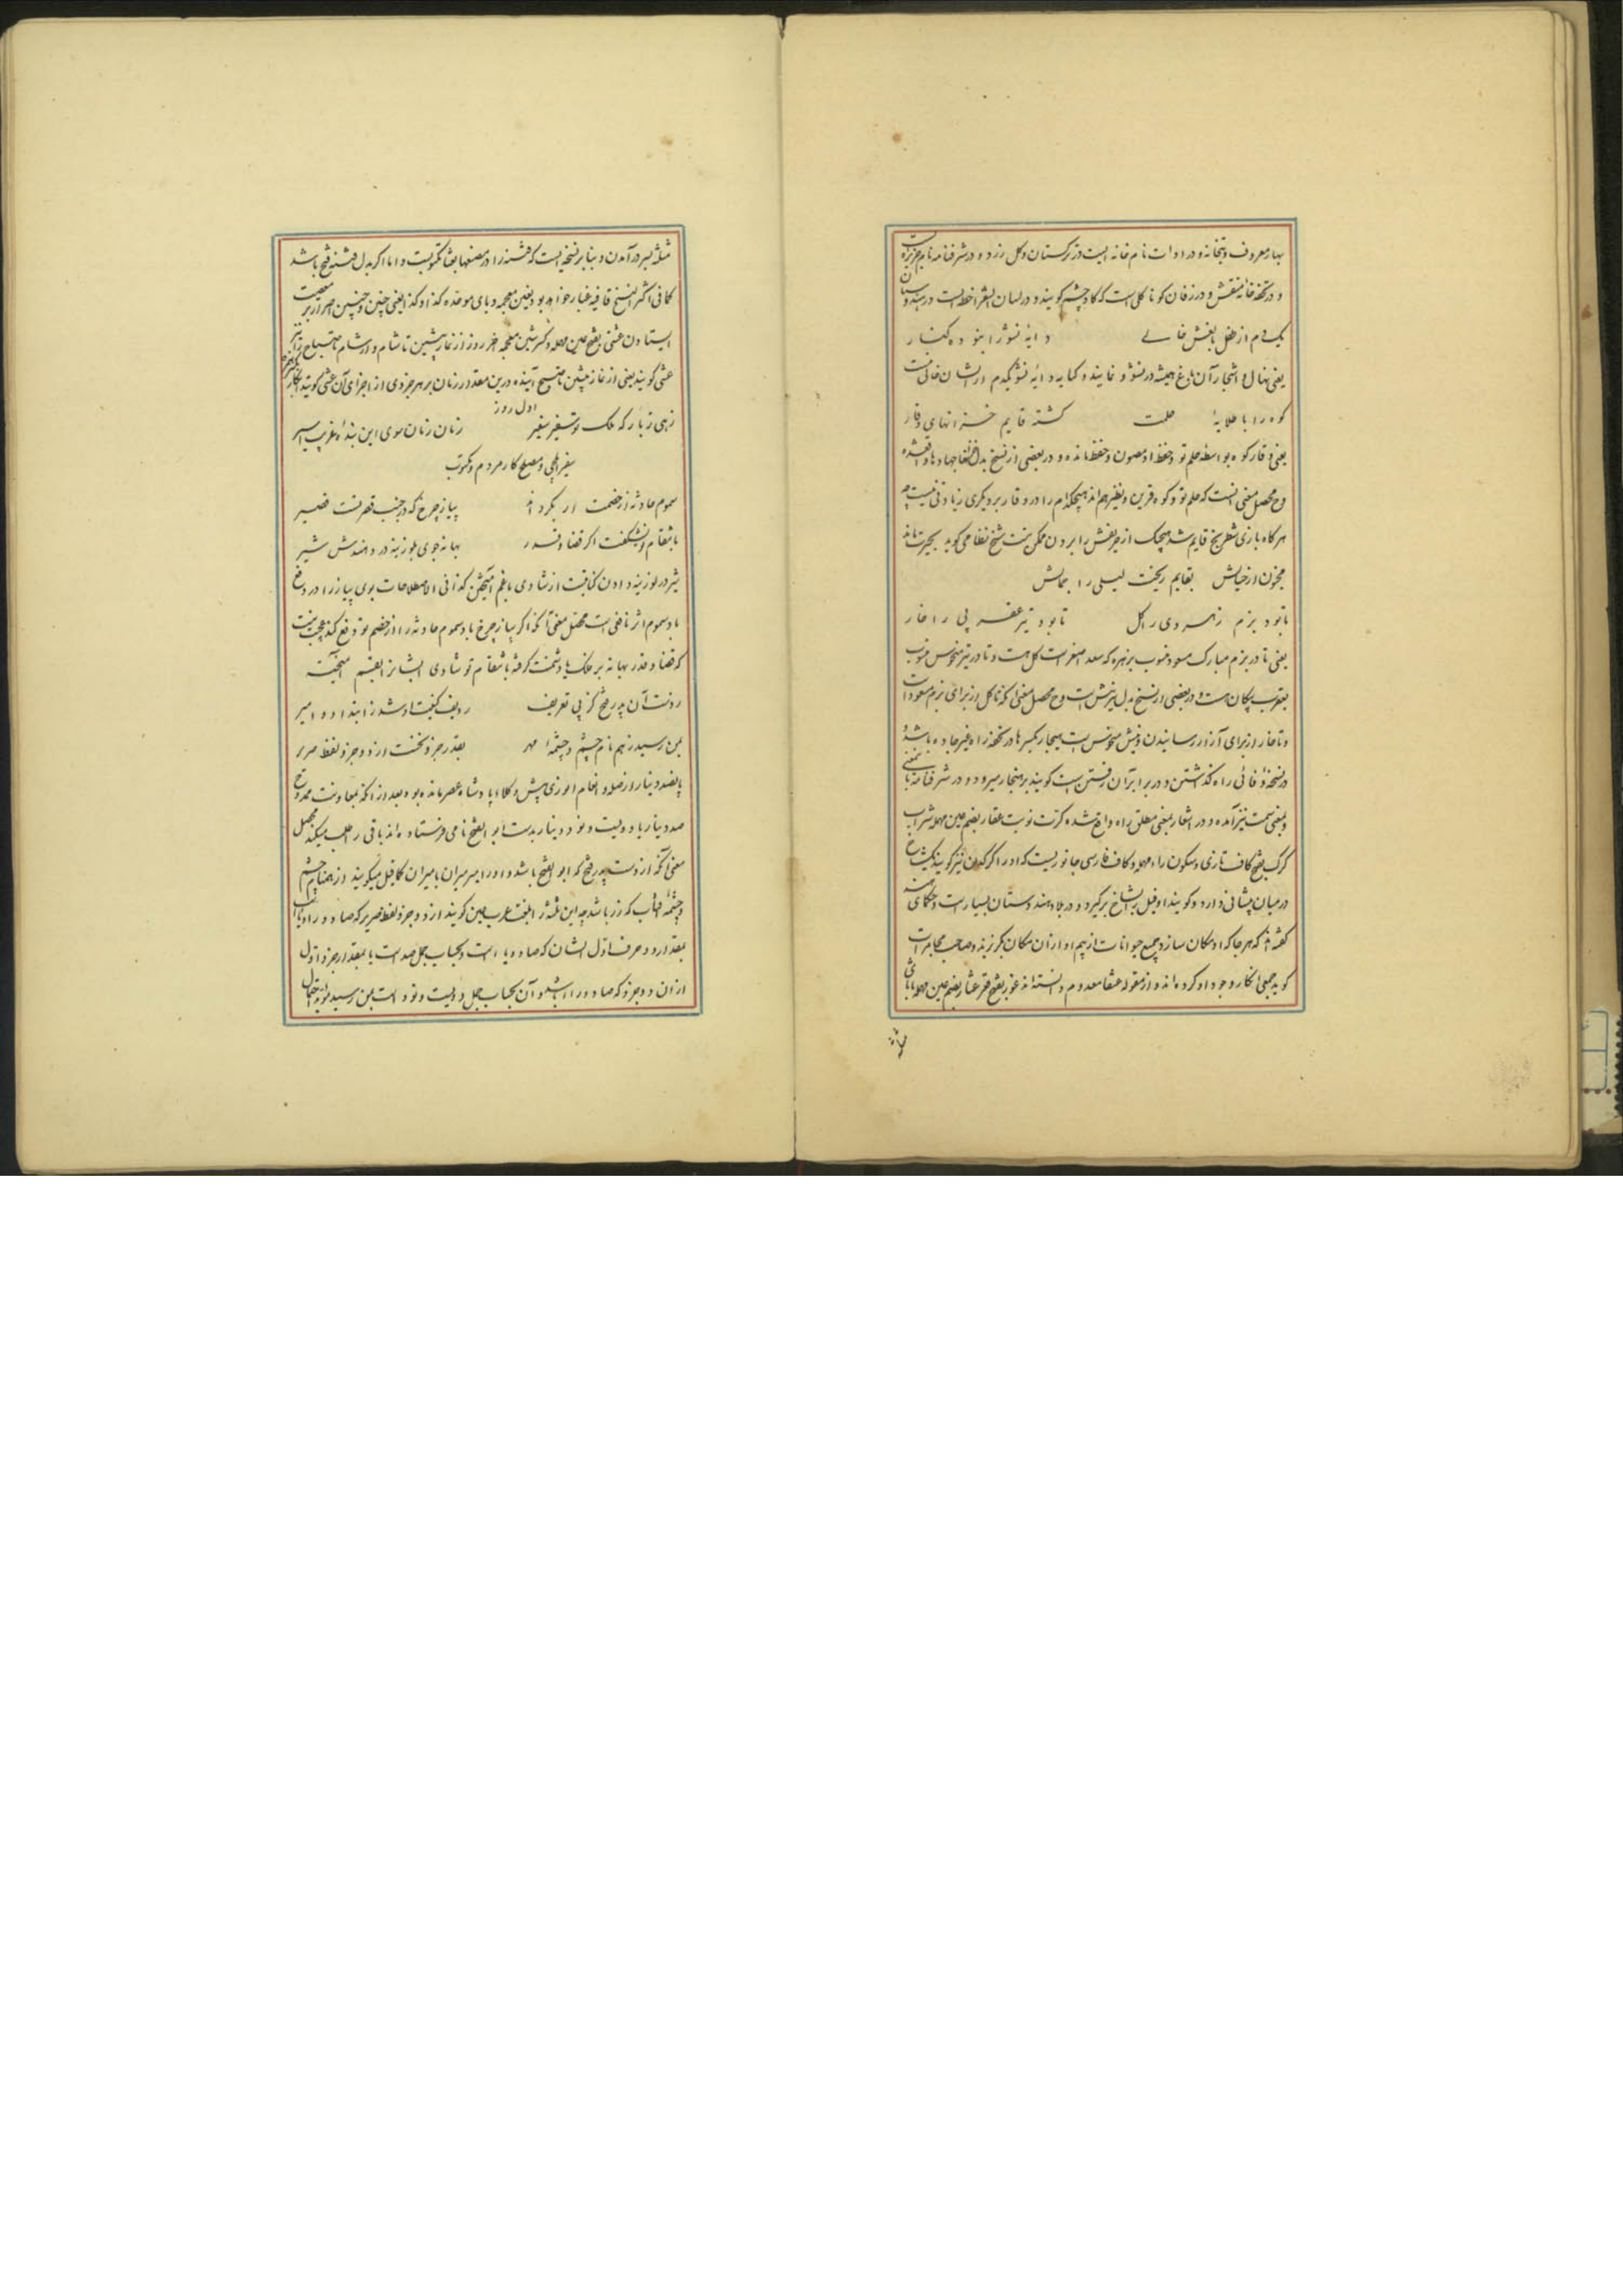 بهار معروف و بتخانه و در ادات نام خانه ایست در ترکستان و کل زرد و در شرفنامه نام جزیره است
و در تحفه خانه منقش و در زفان کو نا کلی است که کاوچشم کویند و در لسان الشعرا خطه ایست در هندوستان
یکدم از طفل باغش خالی
دایه نشو را بنود کنار
یعنی نهال و اشجار آن باغ همیشه در نشو و نمایند و کنایه دایه نشو یکدم از ایشان خالی نیست
کوه را با طلایهٔ حلمت
کشته قایم خزانهای وقار
یعنی وقار کوه بواسطه حلم تو و حفظ او مصون و محفوظ مانده و در بعضی از نسخ بدل
وح محصل معنی انست که حلم تو و کوه قرین و نظیر هم اند هیچکدام را در وقار بر دیکری زیادتی نیست چه
هر کاه بازی شطرنج قایم شد هیچیک از حریفش را بردن ممکن نیست شیخ نظامی کوید بحیرت مانده
مجنون از خیالش بقایم ریخت لیلی را جمالش
تا بود بزم زهره وی را کل
تا بود تیر عقرب پی را خار
یعنی تا در بزم مبارک مسعود منسوب بزهره که سعد اصغر است کل هست و تا در تیر منحوس منسوب
بعقرب پیکان هست و در بعضی از نسخ بدل تیر نیش است وح محصل معنی آنکه تا کل از برای بزم مسعود است
و تا خار از برای آزار رسانیدن و نیش منحوس است هنجار بکسر ها در تحفه راه غیر جاده باشد و
در نسخهٔ وفائی راه کذاشتن و در برابر آن رفتن است کویند بر هنجار میرود و در شرفنامه بمعنی
و بمعنی سمت نیز آمده و در اشعار بمعنی مطلق راه واقع شده کرت نوبت عقار بضم عین مهمله شراب
کرک بفتح کاف تازی و سکون راء مهمله و کاف فارسی جانوریست که او را کرکدن نیز کویند یک شاخ
در میان پیشانی دارد و کویند او فیل را بشاخ برکیرد و در بلاد هندوستان بسیار است و حکمای هند
کفته اند که هر جا که او مکان سازد جمیع حیوانات از بیم او از آن مکان بگریزند و صاحب
کوید جمعی انکار وجود او کرده اند و از مقوله عنقا معدوم دانسته اند غور بفتح قعر عثار بضم عین مهمله با ثای
مثلثه
مثلثه بسر درآمدن و بنابر نسخه ایست که
کما فی اکثر النسخ قافیه غبار خواهد بود بغین معجمه و بای موحده کذا و کذا یعنی چنین و چنین
ایستادن عشی بفتح عین مهمله و کسر شین معجمه آخر روز از نماز پیشین تا شام و از شام تا صباح را نیز
عشی کویند یعنی از نماز پیشین تا صبح آینده درین مقدار زمان بر هر جزوی از اجزای آن عشی کویند
اول روز
زهی زبارکه ملک تو سفیر سفیر
زمان زمان سوی این بنده غریب اسیر
سفیر ایلچی و مصلح کار مردم و مکتوب
سموم حادثه از خصمت ار بکرداند
پیاز چرخ که در جنب قصر تست قصیر
بانتقام تو نشکفت اکر قضا و قدر
بهانه جوی بلوزینه در دهندش سیر
سیر در لوزینه دادن کنایت از شادی با غم آمیختن کذا فی الاصطلاحات بوی پیاز را در دفع
باد سموم اثر نافعی است محصل معنی آنکه اکر پیاز چرخ باد سموم حادثه را از خصم تو دفع کند عجب نیست
که قضا و قدر بهانه بر فلک یا دشمنت کرفته بانتقام تو شادی ایشانرا بغم آمیخته
ز دست آن پدر فتح کز پی تعریف
ردیف کنیت او شد ز ابتدا ده امیر
بمن رسید زهم نام چشم و چشمهٔ مهر
بقدر جزو نخست از دو جزو لفظ صریر
پانصد دینار از صله و انعام انوری پیش وکلاء پادشاه عصر مانده بود بعد از انکه بمعاونت ممدوح
صد دینار یا دویست و نود دینار بدست ابو الفتح نامی فرستاده اند باقی را طلب میکند محصل
معنی آنکه از دست پدر فتح که ابو الفتح باشد و او را میر میران یا میران کافیل میکویند از همنام چشم
و چشمه آفتاب که زر باشد چه این ثلثه را بلغت عرب عین کویند از دو جزو لفظ صریر که صاد و را و یا
بمقدار دو حرف اول ایشان که صاد و یاء است و بحساب جمل صد است یا بمقدار جزو اول
از آن دو جزو که صاد و را باشد و آن بحساب جمل دویست و نود است بمن رسید